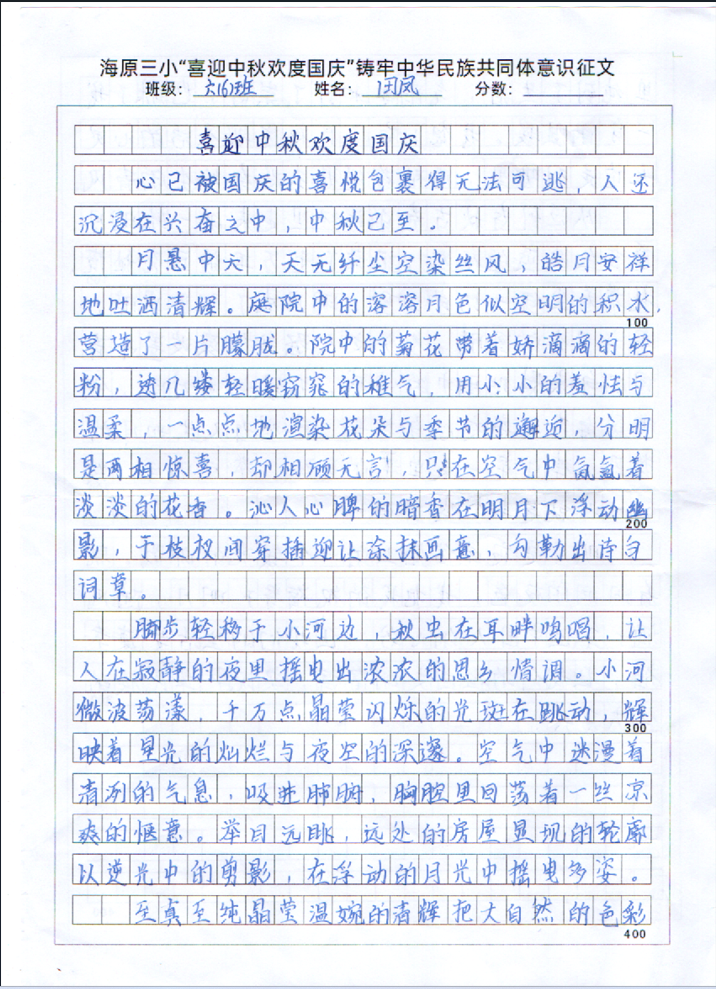 海原三小“喜迎中秋欢度国庆”铸牢中华民族共同体意识征文
班级：六(6)班 姓名：田凤 分数：
喜迎中秋欢度国庆
心已被国庆的喜悦包裹得无法可逃，人还
沉浸在兴奋之中，中秋已至。
月悬中天，天无纤尘空染丝风，皓月安祥
地吐洒清辉。庭院中的溶溶月色似空明的积水，
100
营造了一片朦胧。院中的菊花带着娇滴滴的轻
粉，透几缕轻暖窈窕的稚气，用小小的羞怯与
温柔，一点点地渲染花朵与季节的邂逅，分明
是两相惊喜，却相顾无言，只在空气中氤氲着
淡淡的花香。沁人心脾的暗香在明月下浮动幽
200
影，于枝杈间穿插迎让涂抹画意，勾勒出诗句
词草。
脚步轻移于小河边，秋虫在耳畔鸣唱，让
人在寂静的夜里摇曳出浓浓的思乡情调。小河
微波荡漾，千万点晶莹闪烁的光斑在跳动，辉
300
映着星光的灿烂与夜空的深邃。空气中迷漫着
清冽的气息，吸进肺腑，胸腔里回荡着一丝凉
爽的惬意。举目远眺，远处的房屋显现的轮廓
以逆光中的剪影，在浮动的月光中摇曳多姿。
至真至纯晶莹温婉的清辉把大自然的色彩
400